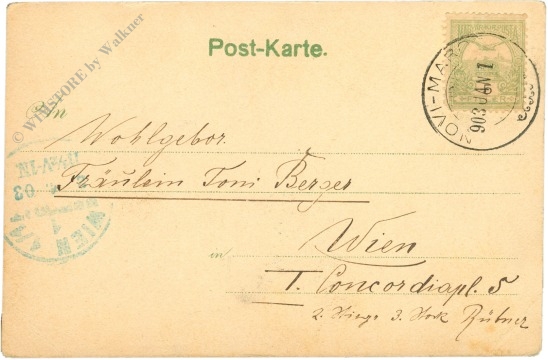 © WIMSTORE by Walkner
Post-Karte.
NOVI-MAR
903 JAN 1
An
Wohlgebor.
Fräulein Toni Berger
in Wien
I. Concordiapl. 5
2. Stiege 3. Stock
WIEN
1
03